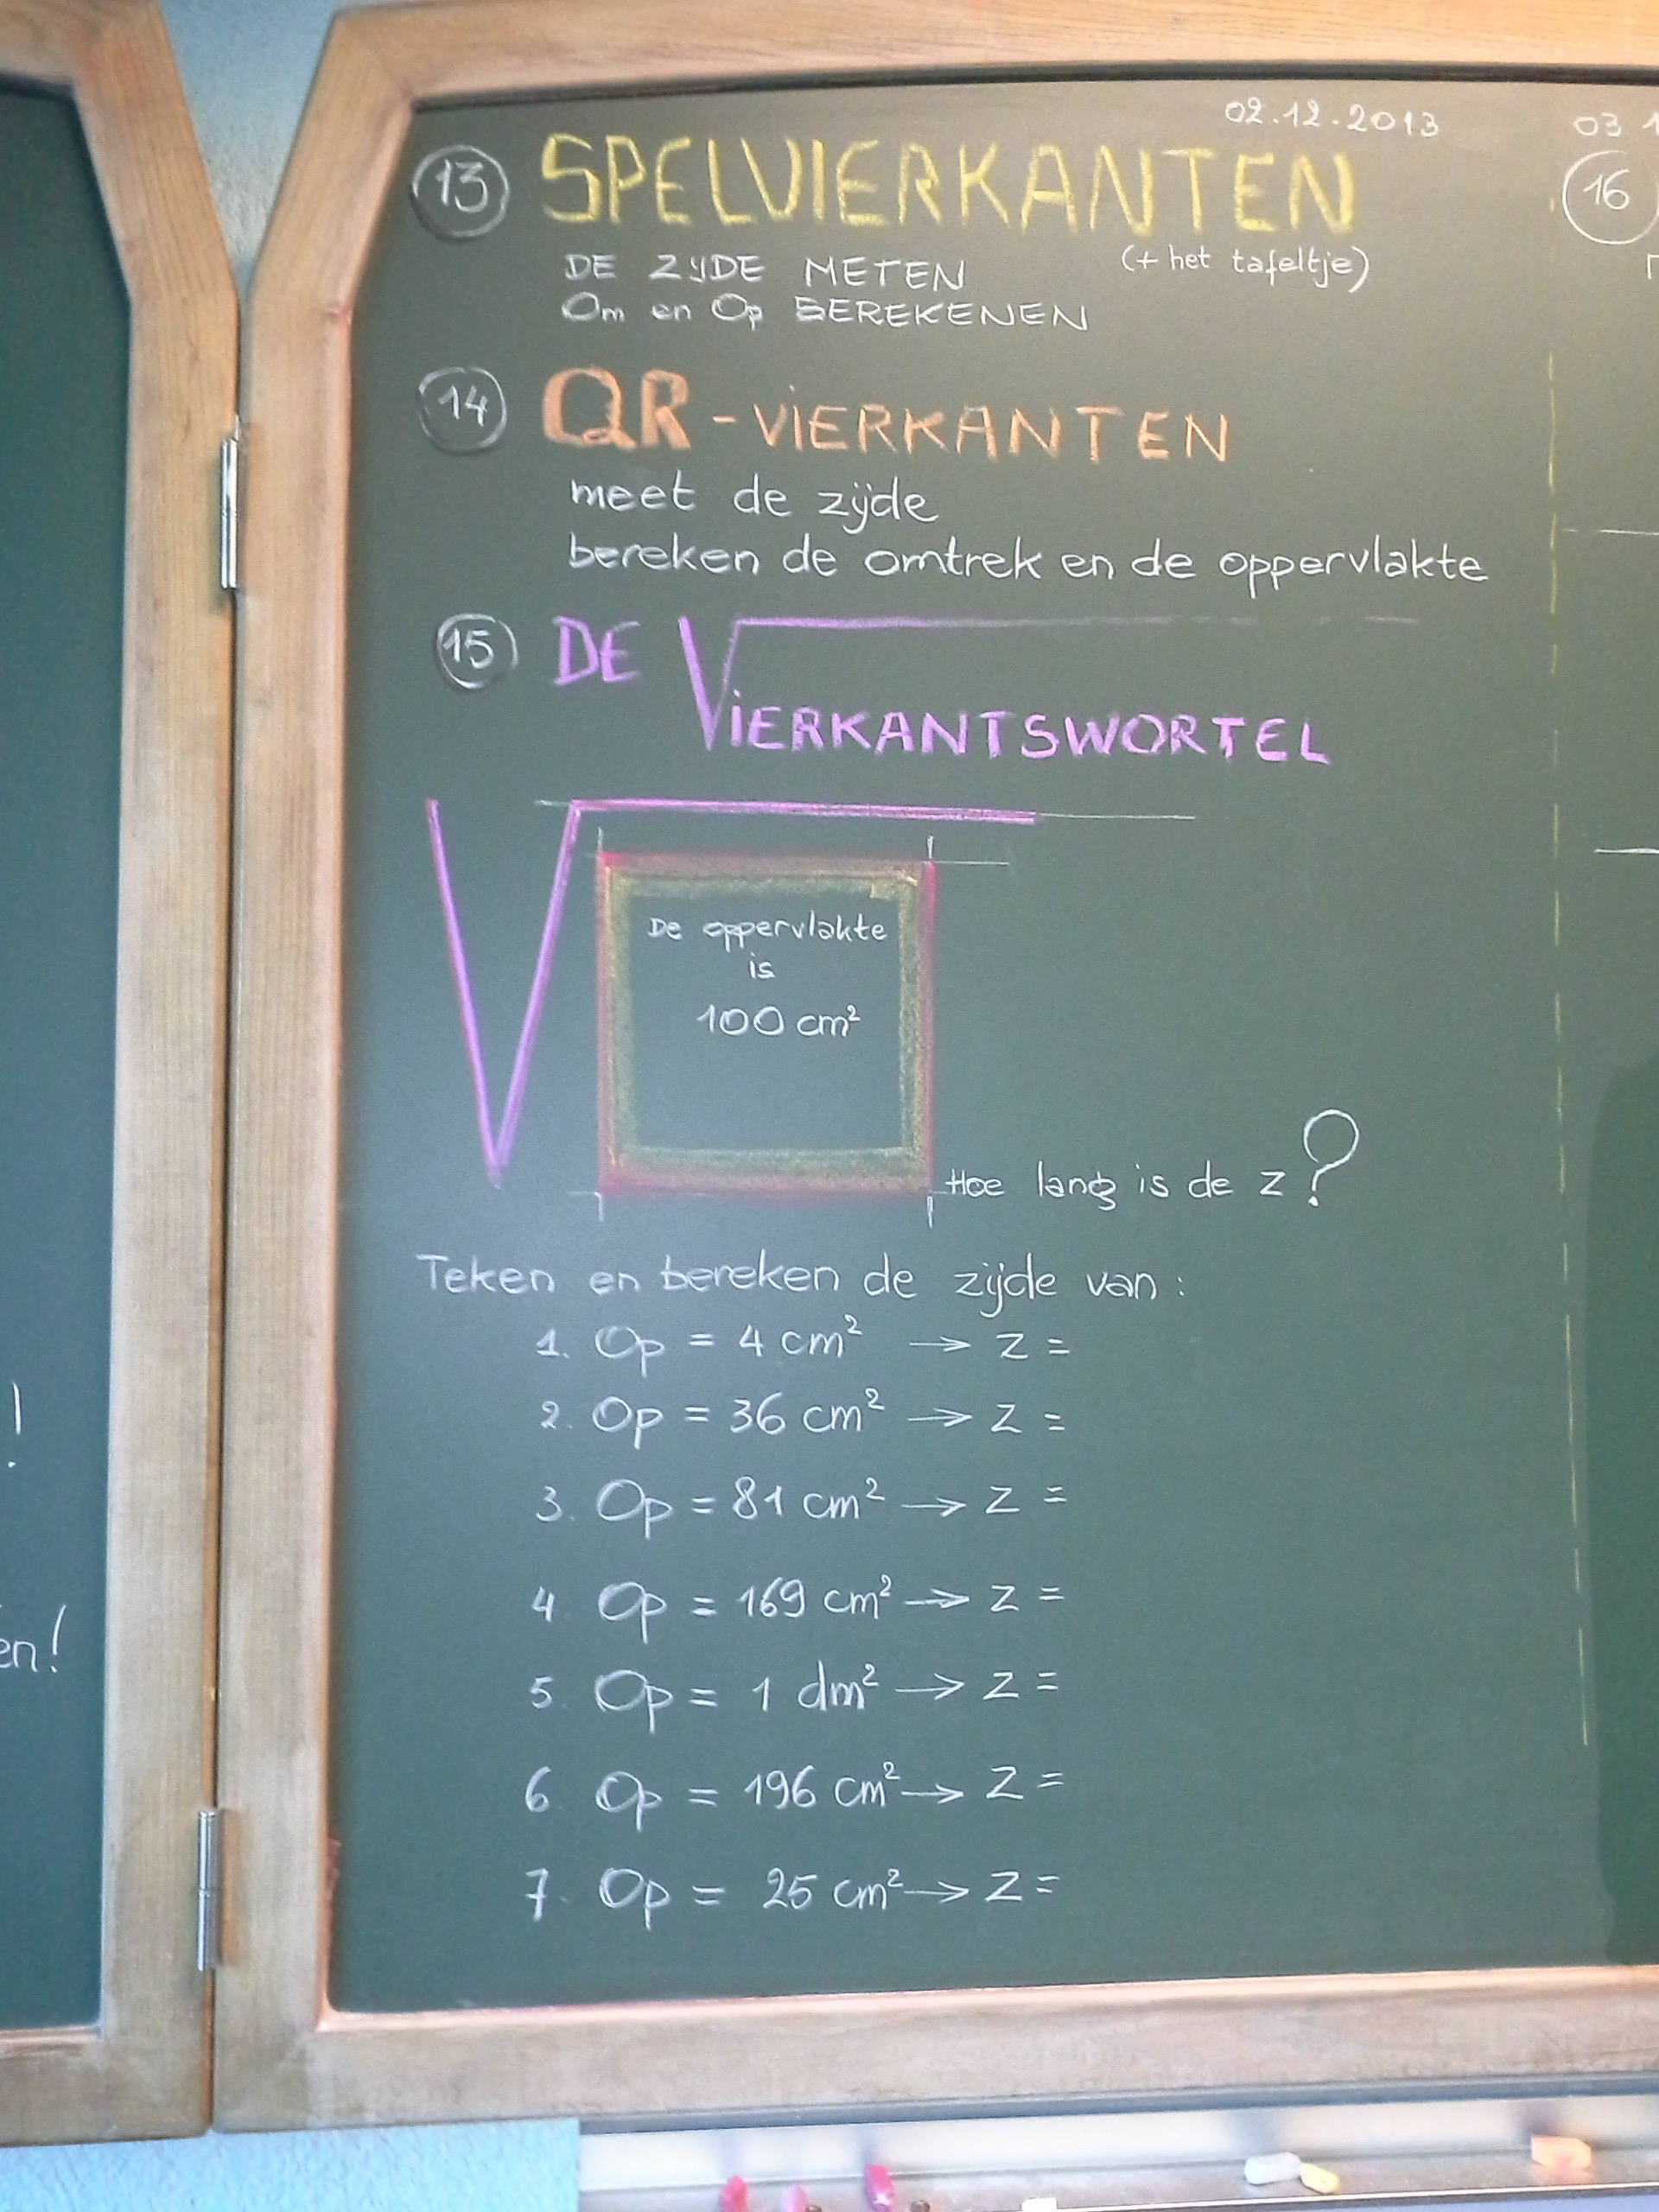 02.12.2013
13 SPELVIERKANTEN
DE ZIJDE METEN (+ het tafeltje)
Om en Op BEREKENEN
14 QR-VIERKANTEN
meet de zijde
bereken de omtrek en de oppervlakte
15 DE VIERKANTSWORTEL
√
De oppervlakte
is
100 cm²
Hoe lang is de z?
Teken en bereken de zijde van:
1. Op = 4 cm² → z =
2. Op = 36 cm² → z =
3. Op = 81 cm² → z =
4. Op = 169 cm² → z =
5. Op = 1 dm² → z =
6. Op = 196 cm² → z =
7. Op = 25 cm² → z =
03
16
!
en!